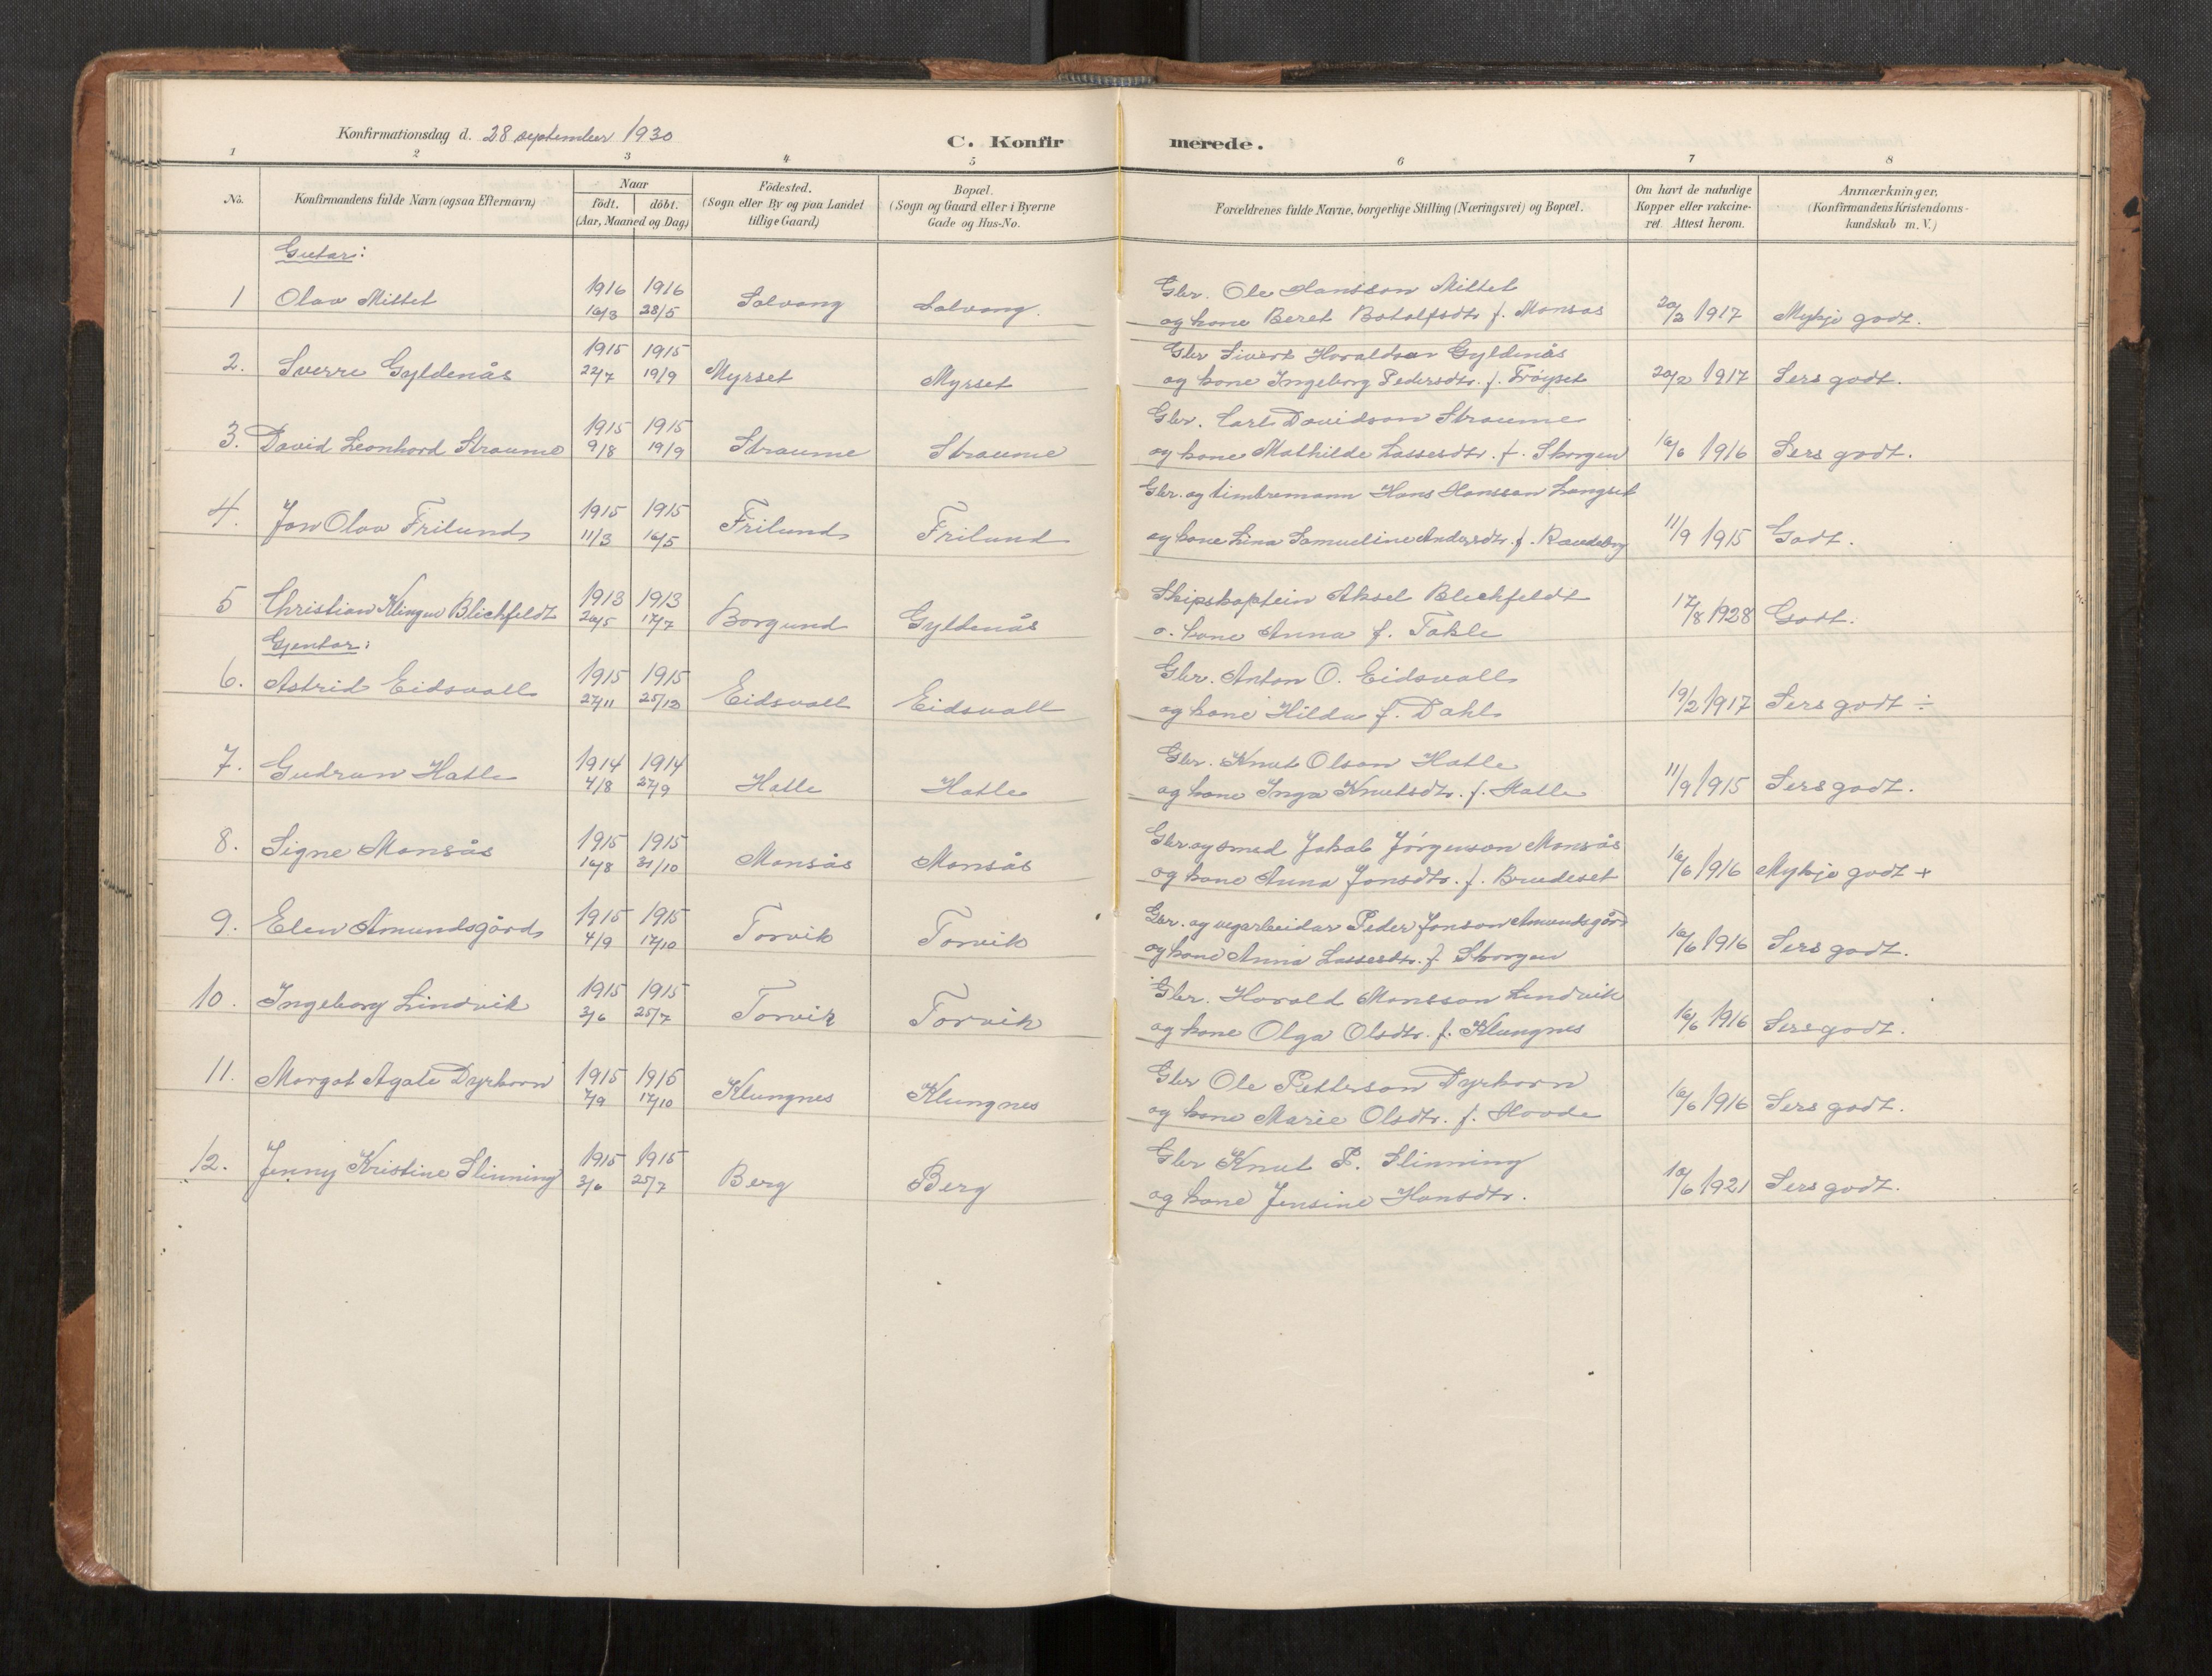 Konfirmationsdag d. 28 september 1930
C. Konfirmerede.
1 2 3 4 5 6 7 8
No. Konfirmandens fulde Navn (ogsaa Efternavn) Naar født. døbt. (Aar, Maaned og Dag) Fødested. (Sogn eller By og paa Landet tillige Gaard) Bopæl. (Sogn og Gaard eller i Byerne Gade og Hus-No. Forældrenes fulde Navne, borgerlige Stilling (Næringsvei) og Bopæl. Om havt de naturlige Kopper eller vakcineret. Attest herom. Anmærkninger, (Konfirmandens Kristendomskundskab m. V.)
Gutar:
1 Olav Mittet 1916 16/3 1916 28/5 Solvang Solvang. Gbr. Ole Hansson Mittet
og kone Beret Botolfsdtr. f. Monsås 20/2 1917 Mykje godt.
2. Sverre Gyldenås 1915 22/7 1915 19/9 Myrset Myrset Gbr Sivert Haraldson Gyldenås
og kone Ingeborg Pedersdtr. f. Frøyset 20/2 1917 Sers godt.
3. David Leonhard Straume 1915 9/8 1915 19/9 Straume Straume Gbr. Carl Davidson Straume
og kone Mathilde Lassesdtr. f. Skorgen 16/6 1916 Sers godt.
4. Jon Olav Frilund 1915 11/3 1915 16/5 Frilund Frilund Gbr. og timbremann Hans Hansson Langset
og kone Lina Samueline Andersdtr. f. Raudeberg 11/9 1915 Godt.
5 Christian Klingen Blichfeldt 1913 20/5 1913 17/7 Borgund Gyldenås Skipskaptein Aksel Blichfeldt
o. kone Anna f. Takle 17/8 1928 Godt.
Gjentor:
6. Astrid Eidsvoll 1915 27/11 1915 25/12 Eidsvoll Eidsvoll Gbr. Anton O. Eidsvoll
og kone Hilda f. Dahl 19/2 1917 Sers godt ÷
7. Gudrun Hatle 1914 4/8 1914 27/9 Hatle Hatle Gbr. Knut Olson Hatle
og kone Inga Knutsdtr. f. Hatle 11/9 1915 Sers godt.
8. Signe Monsås 1915 16/8 1915 31/10 Monsås Monsås Gbr og smed Jakob Jørgenson Monsås
og kone Anna Jonsdtr. f. Brudeset 16/6 1916 Mykje godt +
9. Elen Amundsgård 1915 4/9 1915 17/10 Torvik Torvik Gbr. og vegarbeidar Peder Jonson Amundsgård
og kone Anna Lassesdtr. f. Skorgen 16/6 1916 Sers godt.
10. Ingeborg Lindvik 1915 3/6 1915 25/7 Torvik Torvik Gbr. Harald Monsson Lindvik
og kone Olga Olsdtr. f. Klungnes 16/6 1916 Sers godt.
11. Margot Agate Dyrkorn 1915 7/9 1915 17/10 Klungnes Klungnes Gbr Ole Petterson Dyrkorn
og kone Marie Olsdtr. f. Hovde 16/6 1916 Sers godt.
12. Jenny Kristine Slinning 1915 3/6 1915 25/7 Berg Berg Gbr Knut P. Slinning
og kone Jensine Hansdtr. 10/6 1921 Sers godt.